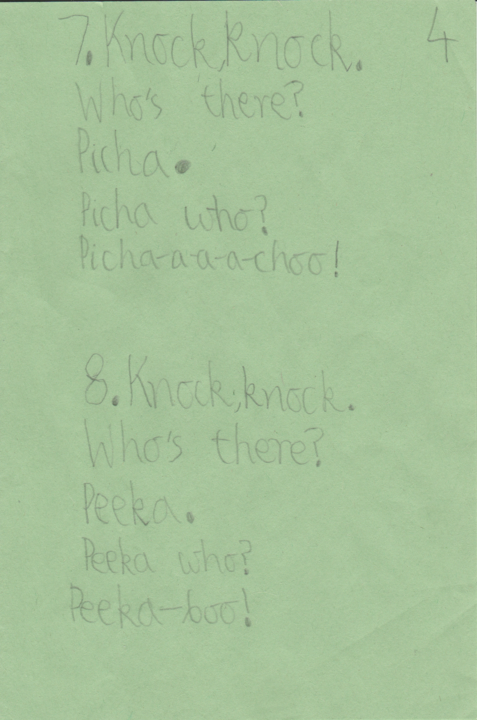 7. Knock, Knock. 4
Who's there?
Picha.
Picha who?
Picha-a-a-a-choo!
8. Knock, knock.
Who's there?
Peeka.
Peeka who?
Peeka-boo!